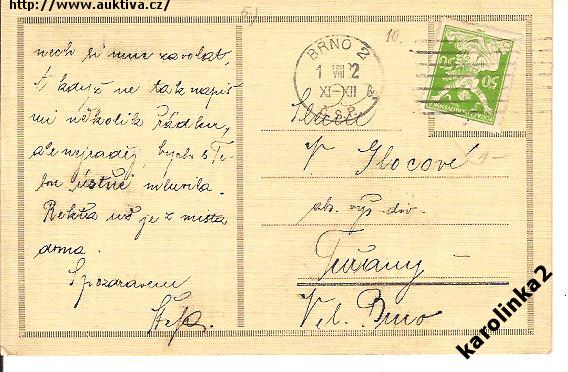 http://www.auktiva.cz/
51
10.
nech si mne zavolat,
A když ne tak napiš
mi několik řádků,
ale nejraděj bych s Te-
bou ústně mluvila.
je z města
doma.
S pozdravem
BRNO 2
1 VIII 2
XI-XII
50
Slečně
Glocové
abs. výs. div.
Tuřany
Vel. Brno
karolinka2